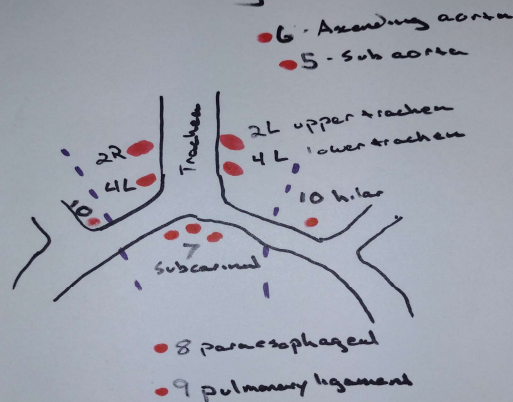 6 - Ascending aorta
5 - Sub aorta
Trachea
2R
2L upper trachea
4L
4L lower trachea
10
10 hilar
7
Subcarinal
8 paraesophageal
9 pulmonary ligament